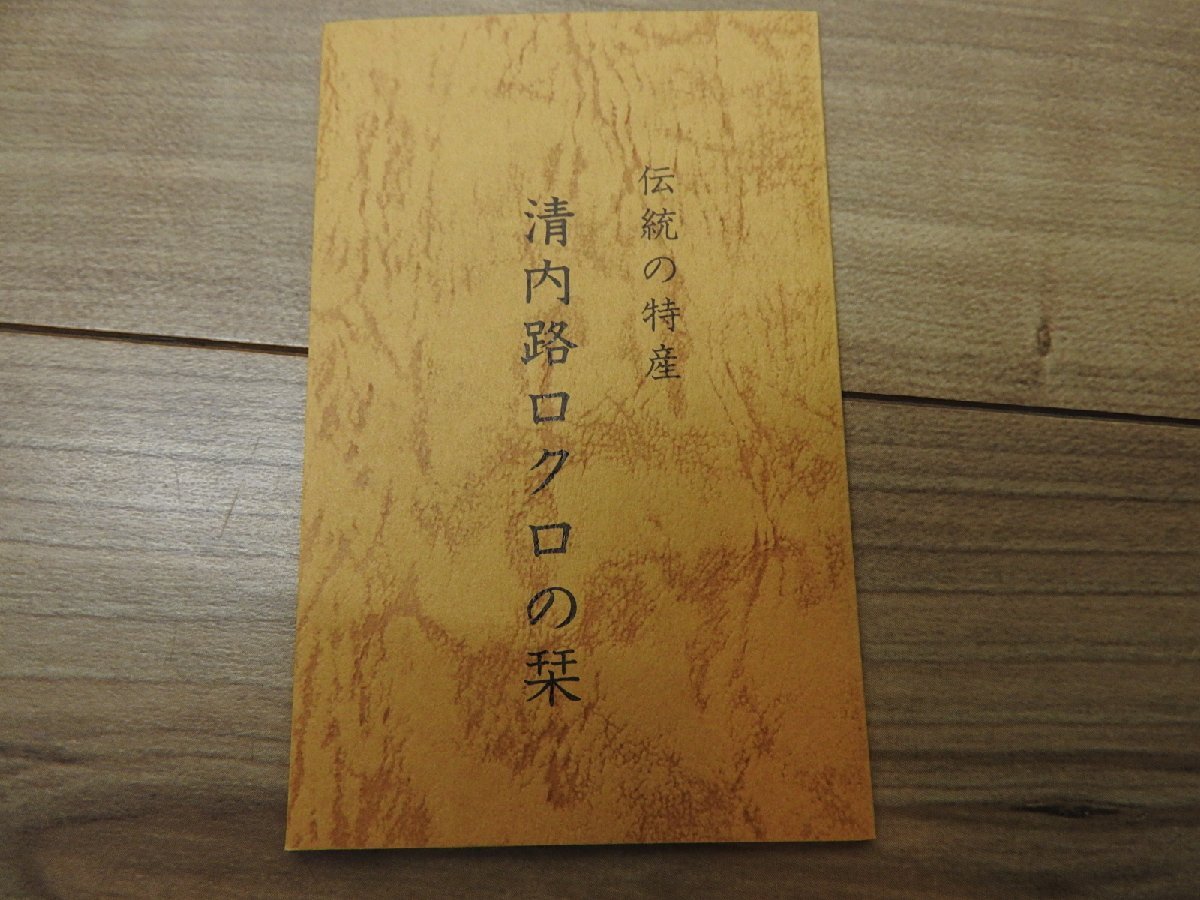 伝統の特産
清内路ロクロの栞